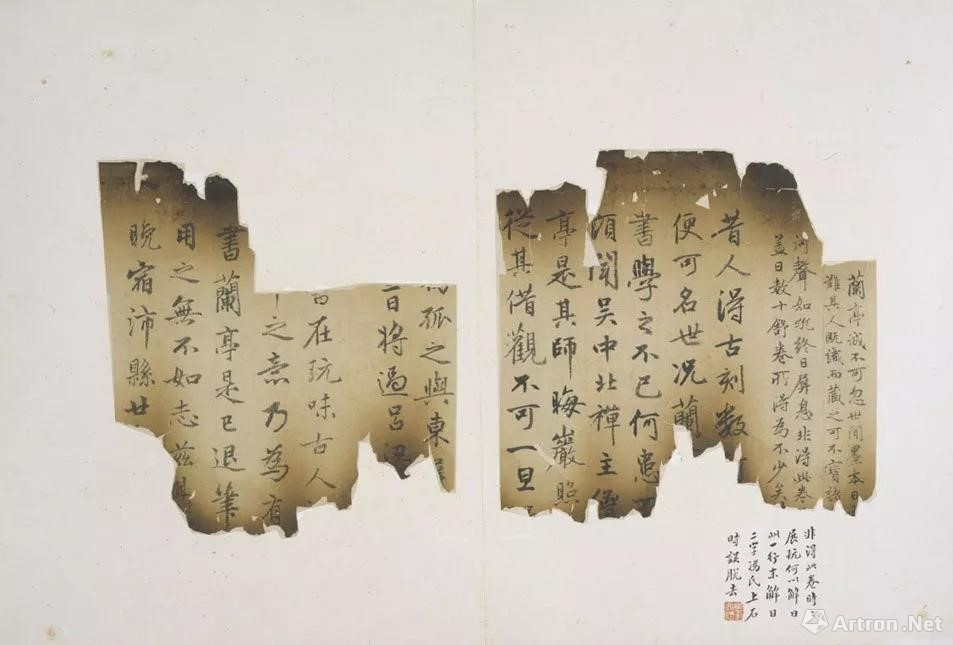 蘭亭誠不可忽世間墨本日
難其人既識而藏之可不寶諸
河聲如吼終日屏息非得此卷
蓋日數十舒卷所得為不少矣
昔人得古刻數
便可名世況蘭
書學之不已何患
頃聞吳中北禪主僧
亭是其師晦巖照
從其借觀不可一旦
孤之與東
日將過呂梁
在玩味古人
之意乃為有
書蘭亭是已退筆
用之無不如志茲
晚宿沛縣廿
非得此卷時
展玩何以解日
此一行末解日
二字馮氏上石
時誤脫去
Artron.Net